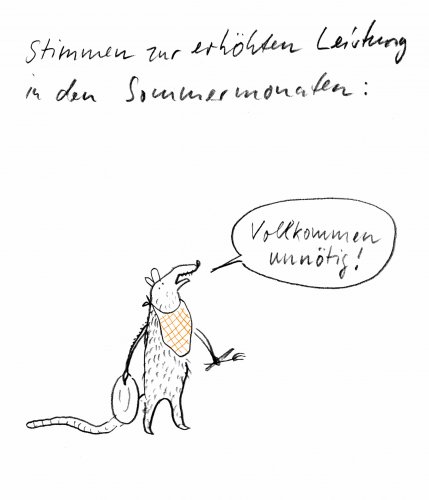 Stimmen zur erhöhten Leistung
in den Sommermonaten:
Vollkommen
unnötig!